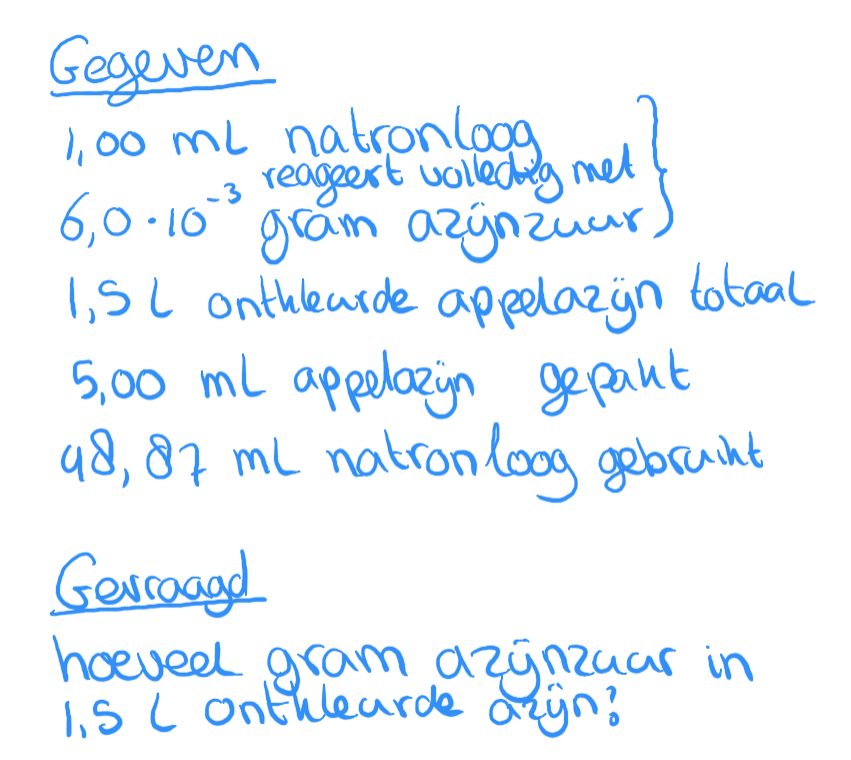 Gegeven
1,00 mL natronloog
reageert volledig met
6,0 · 10⁻³ gram azijnzuur
1,5 L ontkleurde appelazijn totaal
5,00 mL appelazijn gepakt
48,87 mL natronloog gebruikt
Gevraagd
hoeveel gram azijnzuur in
1,5 L ontkleurde azijn?